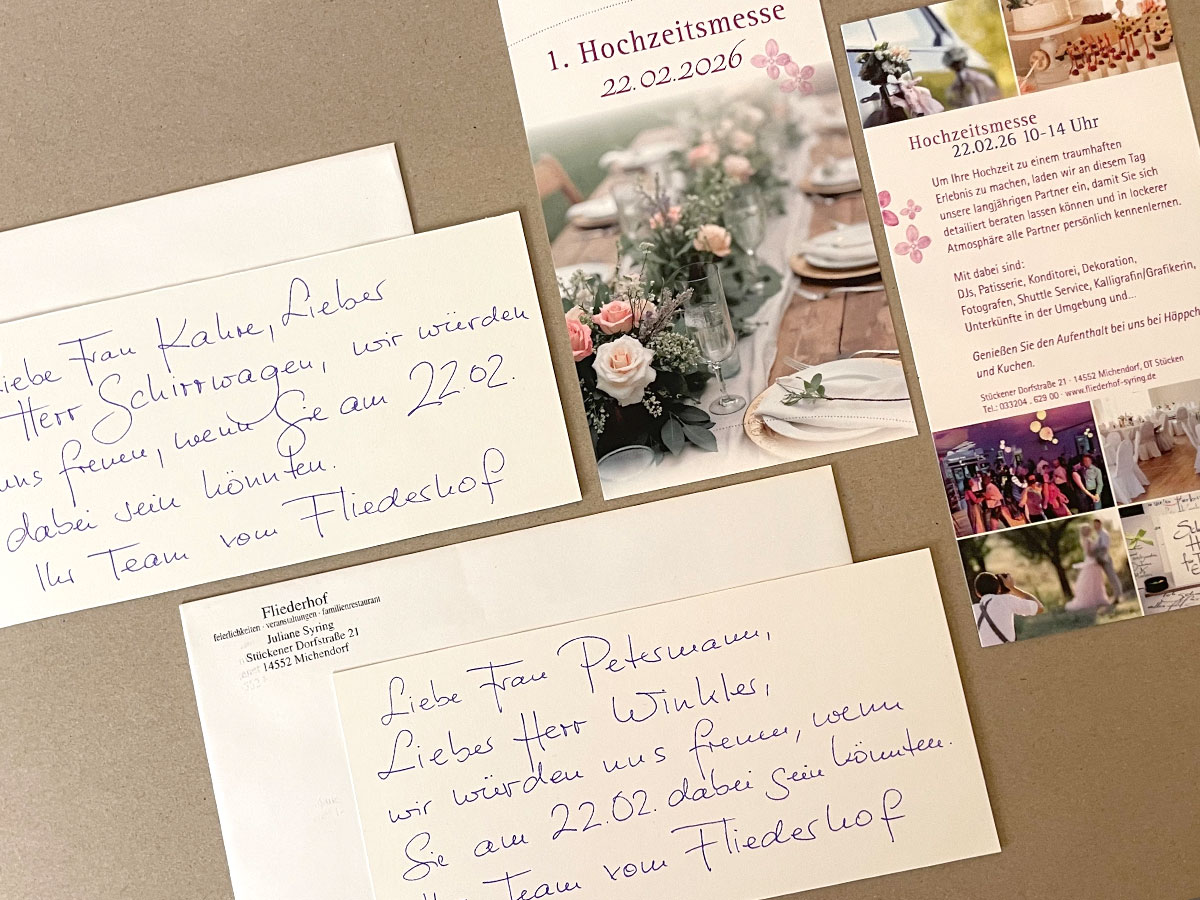 1. Hochzeitsmesse
22.02.2026
Hochzeitsmesse
22.02.26 10-14 Uhr
Um Ihre Hochzeit zu einem traumhaften
Erlebnis zu machen, laden wir an diesem Tag
unsere langjährigen Partner ein, damit Sie sich
detailiert beraten lassen können und in lockerer
Atmosphäre alle Partner persönlich kennenlernen.
Mit dabei sind:
DJs, Patisserie, Konditorei, Dekoration,
Fotografen, Shuttle Service, Kalligrafin/Grafikerin,
Unterkünfte in der Umgebung und...
Genießen Sie den Aufenthalt bei uns bei Häppch
und Kuchen.
Stückener Dorfstraße 21 · 14552 Michendorf, OT Stücken
Tel.: 033204 . 629 00 · www.fliederhof-syring.de
iebe Frau Kahre, Lieber
Herr Schirrwagen, wir würden
uns freuen, wenn Sie am 22.02.
dabei sein könnten.
Ihr Team vom Fliederhof
Fliederhof
feierlichkeiten · veranstaltungen · familienrestaurant
Juliane Syring
Stückener Dorfstraße 21
14552 Michendorf
Liebe Frau Petermann,
Lieber Herr Winkler,
wir würden uns freuen, wenn
Sie am 22.02. dabei sein könnten.
Ihr Team vom Fliederhof